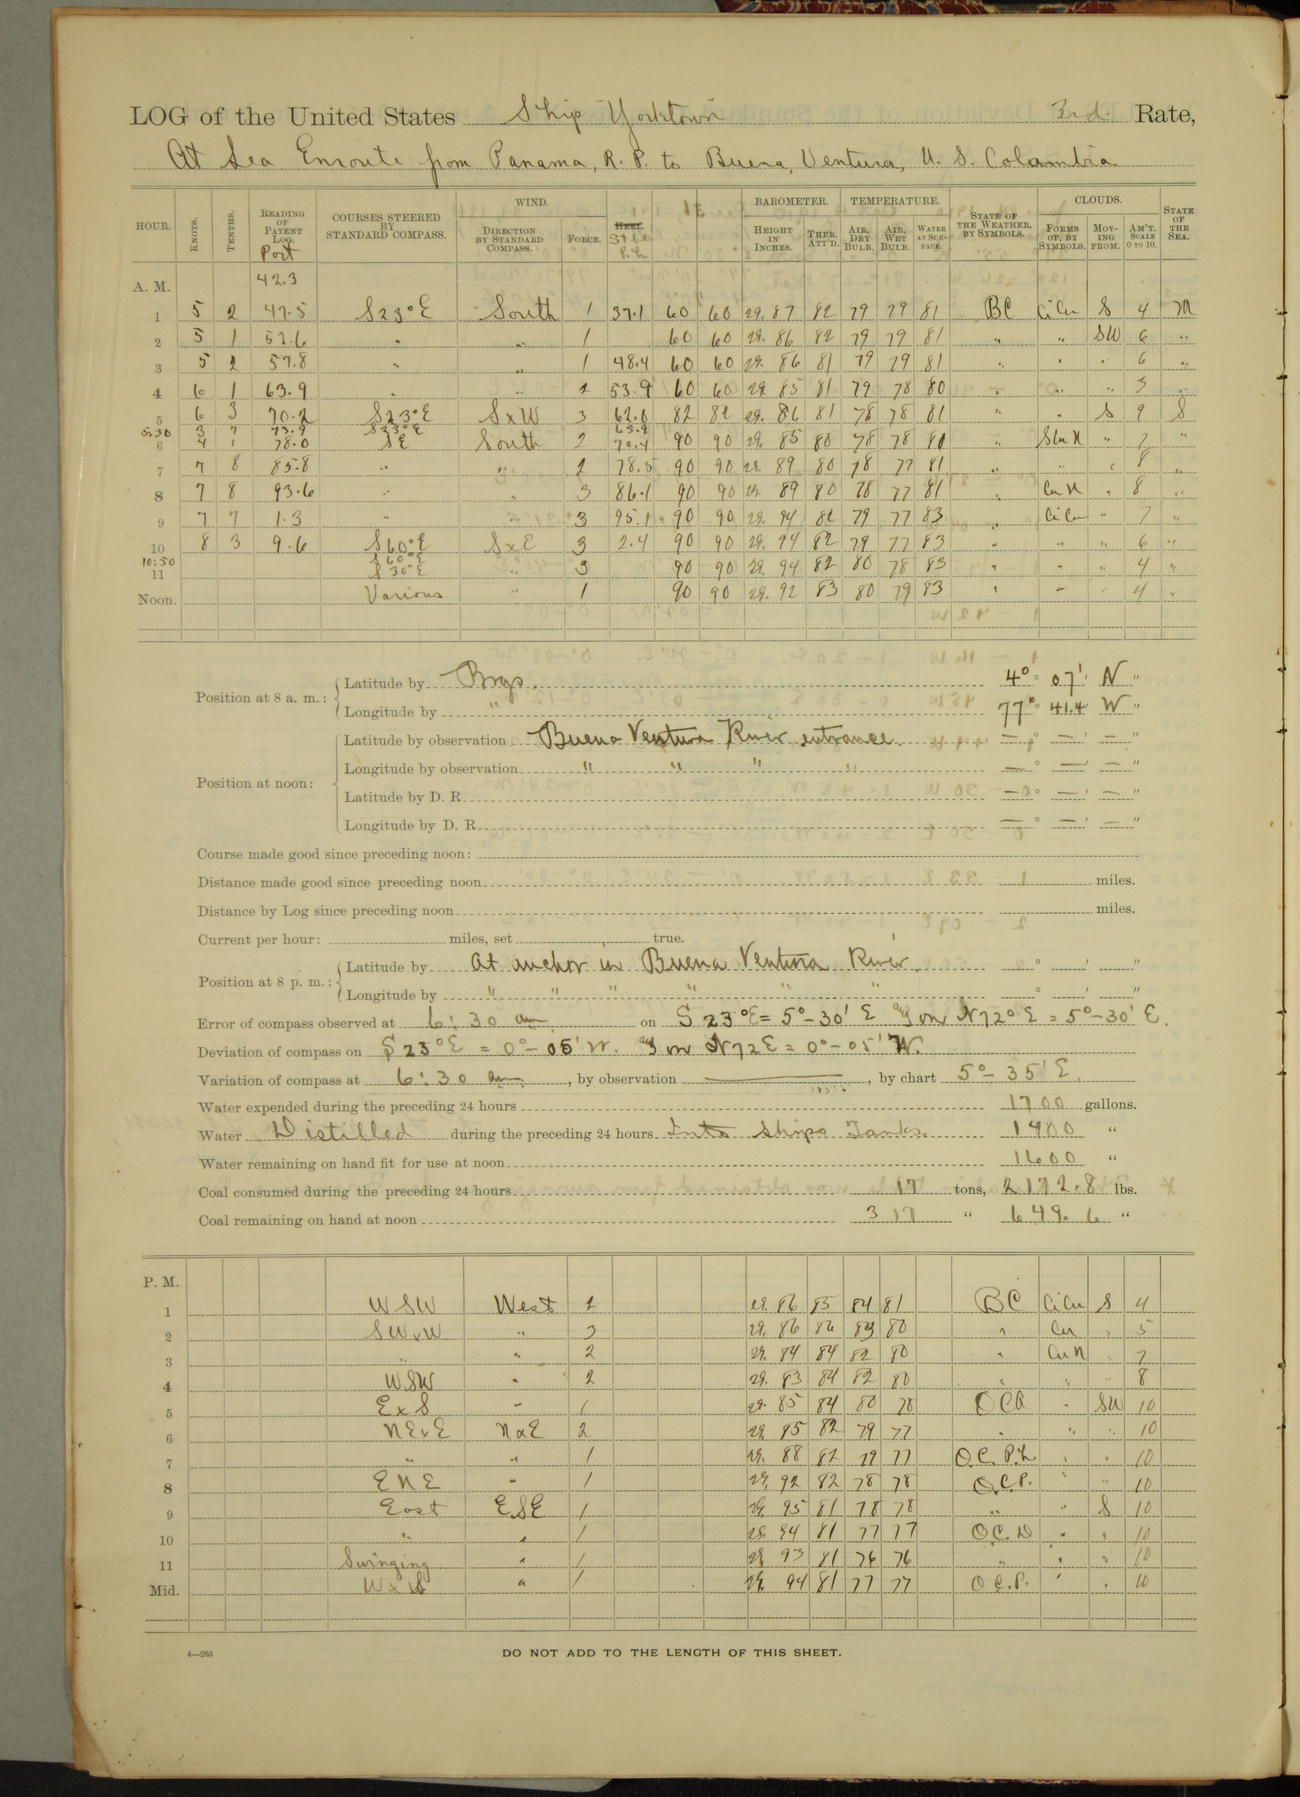 LOG of the United States Ship Yorktown 3rd. Rate,
At Sea Enroute from Panama, R. P. to Buena Ventura, U. S. Colombia
HOUR. KNOTS. TENTHS. READING OF PATENT LOG. Port COURSES STEERED BY STANDARD COMPASS. WIND. DIRECTION BY STANDARD COMPASS. FORCE. BAROMETER. HEIGHT IN INCHES. THER. ATT'D. TEMPERATURE. AIR, DRY BULB. AIR, WET BULB. WATER AT SURFACE. STATE OF THE WEATHER, BY SYMBOLS. CLOUDS. FORMS OF, BY SYMBOLS. MOVING FROM. AM'T. SCALE 0 TO 10. STATE OF THE SEA.
A. M. 42.3
1 5 2 47.5 S23°E South 1 37.1 60 60 29. 87 82 79 79 81 BC CiCu S 4 M
2 5 1 52.6 " " 1 60 60 29. 86 82 79 79 81 " " SW 6 "
3 5 2 57.8 " " 1 48.4 60 60 29. 86 81 79 79 81 " " " 6 "
4 6 1 63.9 " " 2 53.9 60 60 29. 85 81 79 78 80 " " " 3 "
5 6 3 70.2 S23°E SxW 3 62.0 82 82 29. 86 81 78 78 81 " " S 9 S
5:30 3 7 73.9 S23°E
6 4 1 78.0 SE South 2 70.4 90 90 29. 85 80 78 78 80 " SCuN " 7 "
7 7 8 85.8 " " 2 78.5 90 90 29. 89 80 78 77 81 " " " 8 "
8 7 8 93.6 " " 3 86.1 90 90 29. 89 80 78 77 81 CuN " 8 "
9 7 7 1.3 " " 3 95.1 90 90 29. 94 82 79 77 83 " CiCu " 7 "
10 8 3 9.6 S60°E SxE 3 2.4 90 90 29. 94 82 79 77 83 " " " 6 "
10:50 S60°E
11 S30°E " 3 90 90 29. 94 82 80 78 83 " " " 4 "
Noon. Various " 1 90 90 29. 92 83 80 79 83 " " " 4 "
Position at 8 a. m.: Latitude by Brgs. 4° 07' N "
Longitude by " 77° 41.4' W "
Position at noon: Latitude by observation Buena Ventura River entrance. — ° — ' — "
Longitude by observation " " " " — ° — ' — "
Latitude by D. R. — ° — ' — "
Longitude by D. R. — ° — ' — "
Course made good since preceding noon:
Distance made good since preceding noon miles.
Distance by Log since preceding noon miles.
Current per hour: miles, set true.
Position at 8 p. m.: Latitude by At anchor in Buena Ventura River. ° ' "
Longitude by " " " " " " ° ' "
Error of compass observed at 6:30 am on S 23°E = 5°-30' E on N72°E = 5°-30' E.
Deviation of compass on S 23°E = 0°-05' W. on N72E = 0°-05' W.
Variation of compass at 6:30 am, by observation , by chart 5°-35' E.
Water expended during the preceding 24 hours 1700 gallons.
Water Distilled during the preceding 24 hours Into Ships Tanks. 1400 "
Water remaining on hand fit for use at noon 1600 "
Coal consumed during the preceding 24 hours 17 tons, 2172.8 lbs.
Coal remaining on hand at noon 317 " 649.6 "
P. M.
1 WSW West 2 29. 86 85 84 81 BC CiCu S 4
2 SWxW " 3 29. 86 86 83 80 " Cu " 5
3 " " 2 29. 84 84 82 80 " CuN " 7
4 WSW " 2 29. 83 84 82 80 " " " 8
5 ExS " 1 29. 85 84 80 78 " SW 10
6 NExE NxE 2 29. 85 82 79 77 " " " 10
7 " " 1 29. 88 82 79 77 O.C. P.L " " 10
8 ENE " 1 29. 92 82 78 78 O.C.P. " " 10
9 East ESE 1 29. 95 81 78 78 " " S 10
10 " " 1 29. 94 81 77 77 O.C. D " " 10
11 Swinging " 1 29. 93 81 76 76 " " " 10
Mid. " 1 29. 94 81 77 77 O.C.P. " " 10
4—265 DO NOT ADD TO THE LENGTH OF THIS SHEET.